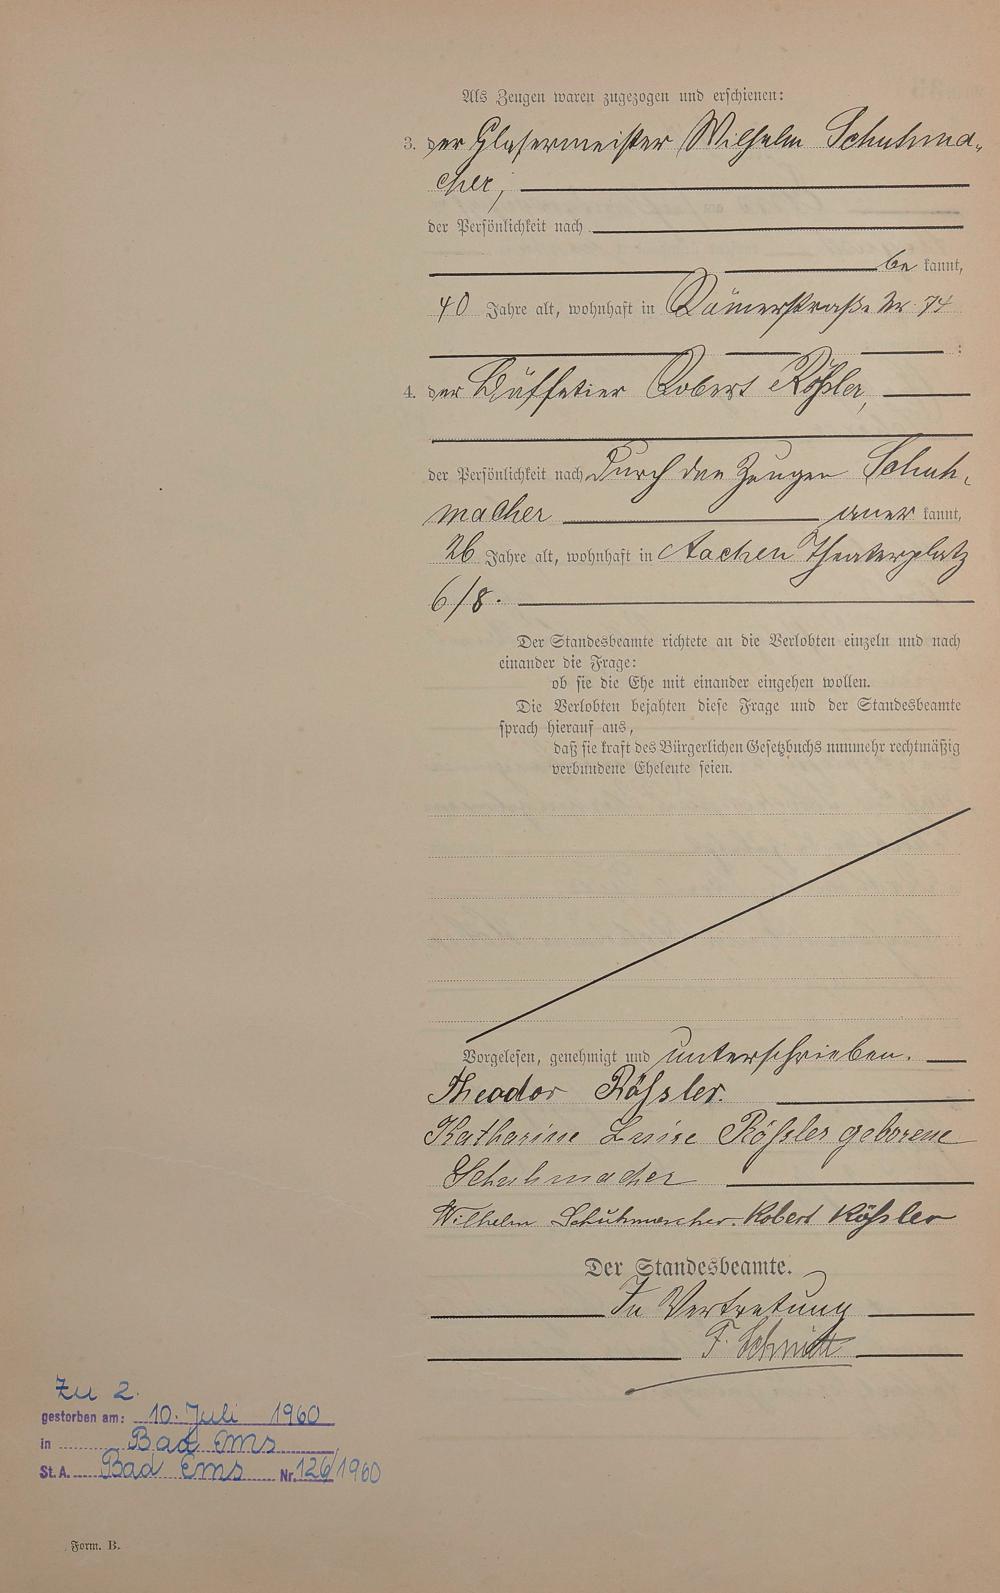 Als Zeugen waren zugezogen und erschienen:
3. der Glasermeister Wilhelm Schuhma-
cher,
der Persönlichkeit nach
be kannt,
40 Jahre alt, wohnhaft in Römerstraße Nr. 74
:
4. der Büffetier Robert Rößler,
der Persönlichkeit nach durch den Zeugen Schuh-
macher aner kannt,
26 Jahre alt, wohnhaft in Aachen Theaterplatz
6/8.
Der Standesbeamte richtete an die Verlobten einzeln und nach
einander die Frage:
ob sie die Ehe mit einander eingehen wollen.
Die Verlobten bejahten diese Frage und der Standesbeamte
sprach hierauf aus,
daß sie kraft des Bürgerlichen Gesetzbuchs nunmehr rechtmäßig
verbundene Eheleute seien.
Vorgelesen, genehmigt und unterschrieben.
Theodor Rößler.
Katharine Luise Rößler geborene
Schuhmacher
Wilhelm Schuhmacher. Robert Rößler
Der Standesbeamte.
In Vertretung
F. Schmitt
Zu 2.
gestorben am: 10. Juli 1960
in Bad Ems
St. A. Bad Ems Nr. 126/1960
Form. B.